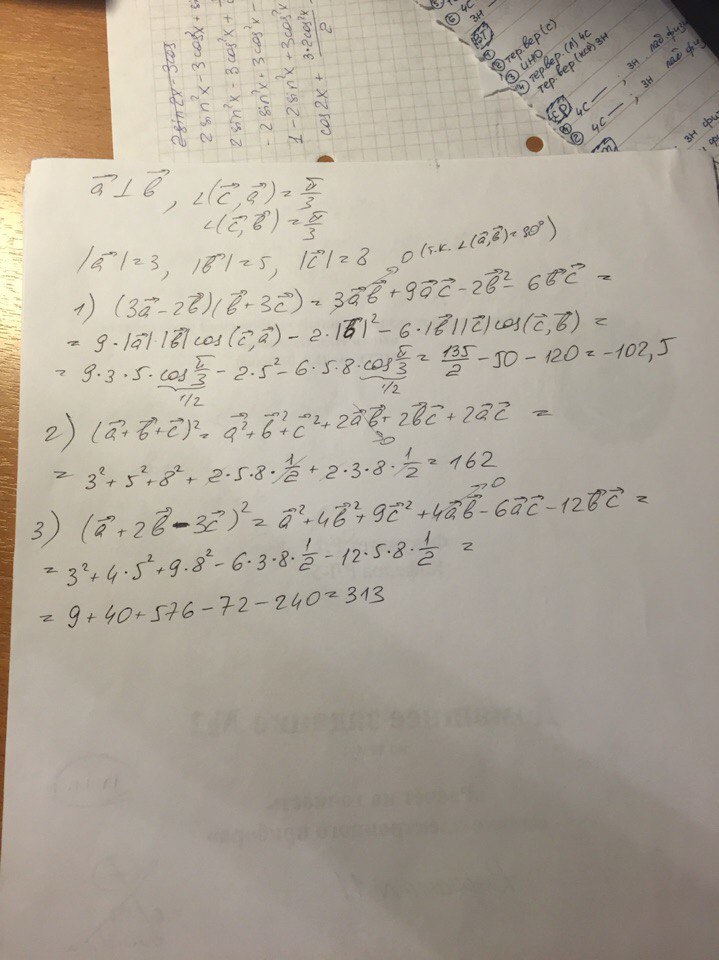 2sin2x - 3cos
2sin²x - 3cos²x + sin
2sin²x - 3cos²x +
- 2sin²x + 3cos²x -
1 - 2sin²x + 3cos²x
cos2x + 3·2cos²x / 2
4С
3Н
тер.вер (с)
ИНО
тер.вер. (л) 4С
тер.вер (кср) 3Н
СР
4С — , 3Н
4С — , 3Н
a⃗ ⊥ b⃗ , ∠(c⃗, a⃗) = π/3
∠(c⃗, b⃗) = π/3
|a⃗| = 3, |b⃗| = 5, |c⃗| = 8 0 (т.к. ∠(a⃗,b⃗)=90°)
1) (3a⃗ - 2b⃗)(b⃗ + 3c⃗) = 3a⃗b⃗ + 9a⃗c⃗ - 2b⃗² - 6b⃗c⃗ =
= 9·|a⃗|·|b⃗|cos(c⃗,a⃗) - 2·|b⃗|² - 6·|b⃗||c⃗|cos(c⃗,b⃗) =
= 9·3·5·cos π/3 - 2·5² - 6·5·8·cos π/3 = 135/2 - 50 - 120 = -102,5
1/2 1/2
2) (a⃗+b⃗+c⃗)² = a⃗²+b⃗²+c⃗²+2a⃗b⃗+2b⃗c⃗+2a⃗c⃗ =
0
= 3²+5²+8²+2·5·8·1/2+2·3·8·1/2 = 162
0
3) (a⃗+2b⃗-3c⃗)² = a⃗²+4b⃗²+9c⃗²+4a⃗b⃗-6a⃗c⃗-12b⃗c⃗ =
= 3²+4·5²+9·8²-6·3·8·1/2-12·5·8·1/2 =
= 9+40+576-72-240=313